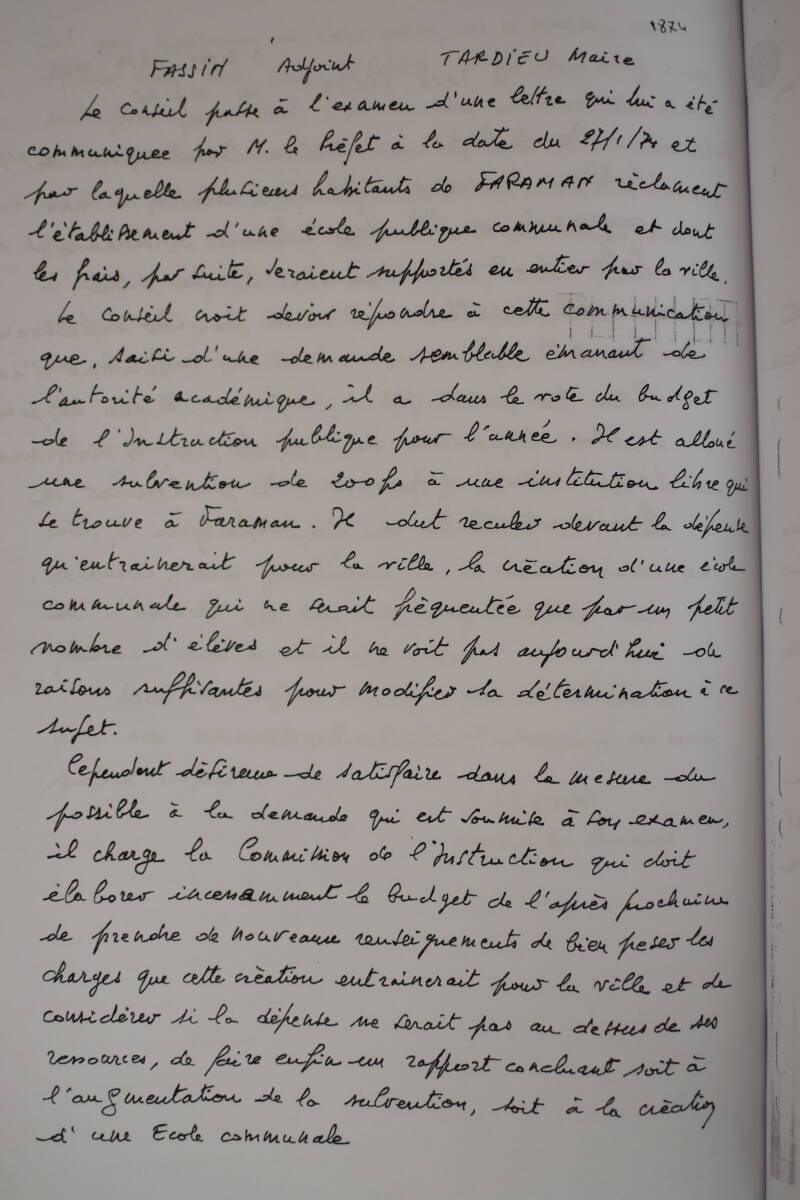 1874
FASSIN Adjoint TARDIEU Maire
Le Conseil passe à l'examen d'une lettre qui lui a été
communiquée par M. le Préfet à la date du 27/1/74 et
par laquelle plusieurs habitants de FARAMAN réclament
l'établissement d'une école publique communale et dont
les frais, par suite, seraient supportés en entier par la ville.
Le Conseil croit devoir répondre à cette communication
que, saisi d'une demande semblable émanant de
l'autorité académique, il a dans le vote du budget
de l'Instruction publique pour l'année. Il est alloué
une subvention de 200 frs à une institution libre qui
se trouve à Faraman. Il dut reculer devant la dépense
qu'entrainerait pour la ville, la création d'une école
communale qui ne serait fréquentée que par un petit
nombre d'élèves et il ne voit pas aujourd'hui de
raisons suffisantes pour modifier sa détermination à ce
sujet.
Cependent désireux de satisfaire dans la mesure du
possible à la demande qui est soumise à son examen,
il charge la Commission de l'Instruction qui doit
élaborer incessamment le budget de l'après prochaine
de prendre de nouveaux renseignements de bien peser les
charges que cette création entrainerait pour la ville et de
considérer si la dépense ne serait pas au dessus de ses
ressources, de faire enfin un rapport concluant soit à
l'augmentation de la subvention, soit à la création
d'une Ecole communale